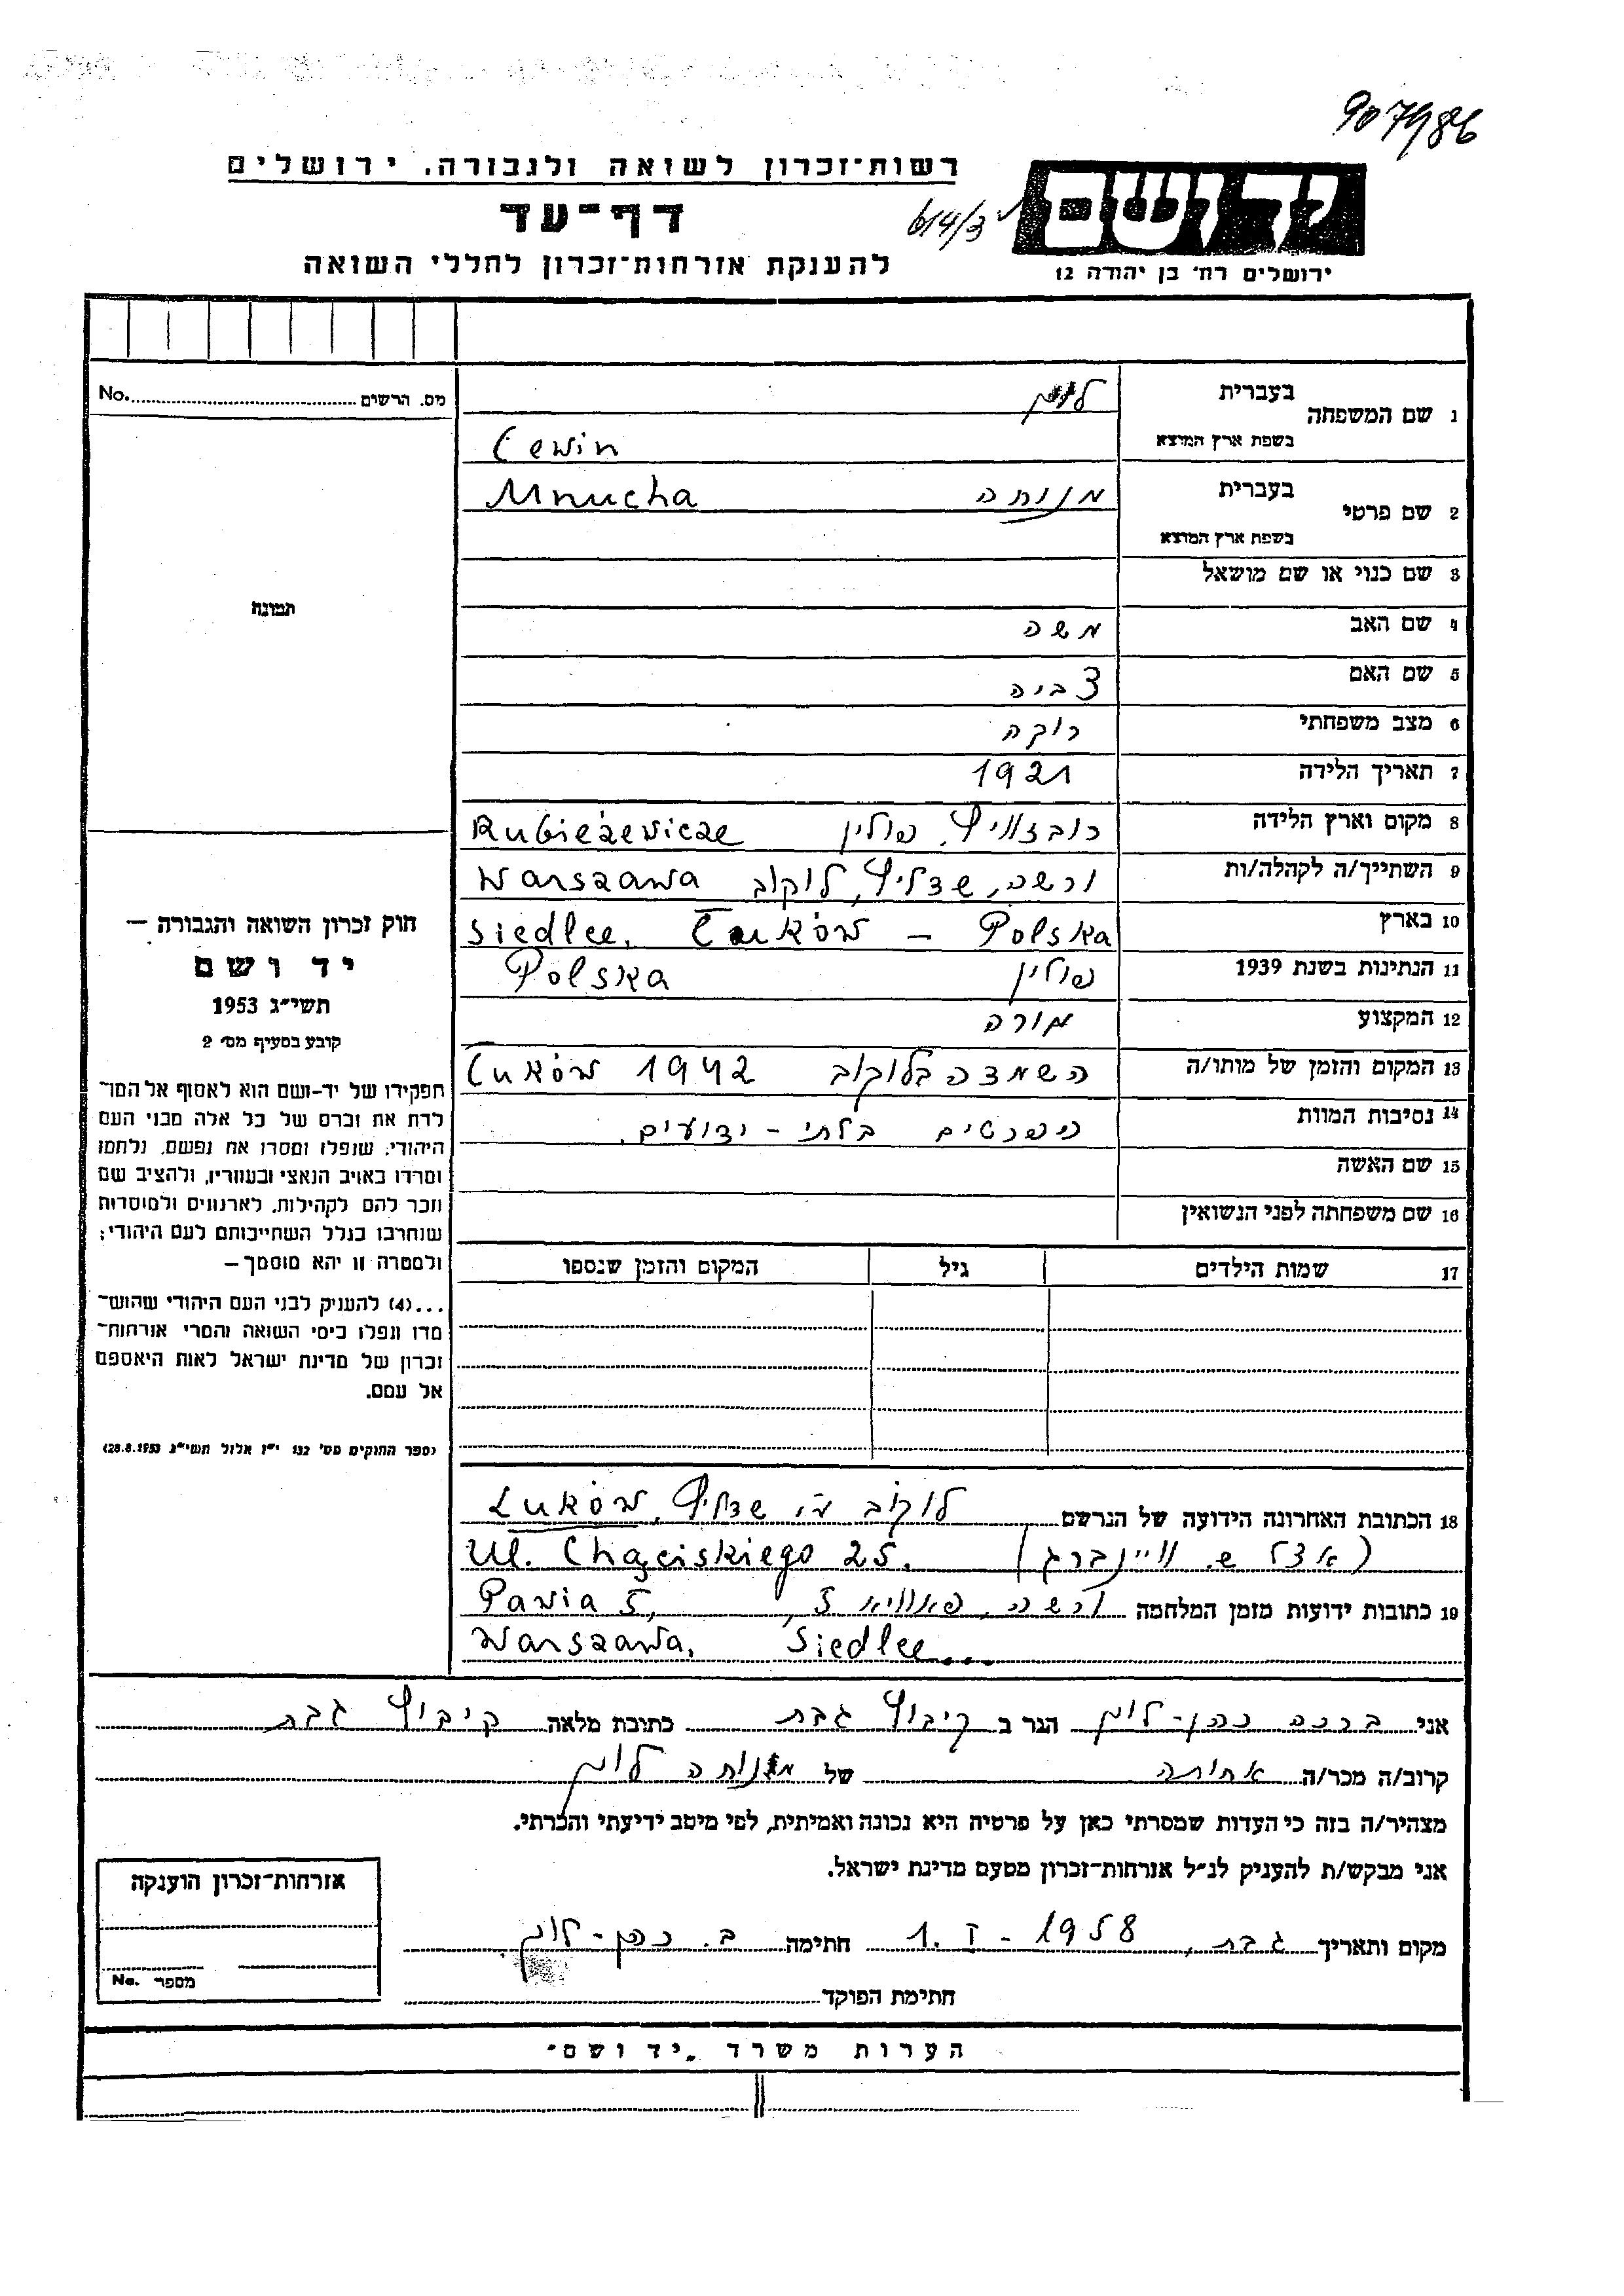 907986
רשות־זכרון לשואה ולגבורה, ירושלים
דף־עד
614/3
יד ושם
להענקת אזרחות־זכרון לחללי השואה
ירושלים רח׳ בן יהודה 12
No. מס. הרשים
1 שם המשפחה בעברית לוין
בשפת ארץ המוצא Lewin
2 שם פרטי בעברית מנוחה Mnucha
בשפת ארץ המוצא
3 שם כנוי או שם מושאל
תמונה
4 שם האב משה
5 שם האם צביה
6 מצב משפחתי רוקה
7 תאריך הלידה 1921
8 מקום וארץ הלידה רובזוויץ, פולין Rubieżewicze
9 השתייך/ה לקהלה/ות ורשה, שדליץ, לוקוב Warszawa
10 בארץ Siedlce, Łuków – Polska
11 הנתינות בשנת 1939 פולין Polska
12 המקצוע מורה
13 המקום והזמן של מותו/ה השמדה בלוקוב 1942 Łuków
14 נסיבות המוות בלתי - ידועים.
15 שם האשה
16 שם משפחתה לפני הנשואין
17 שמות הילדים גיל המקום והזמן שנספו
חוק זכרון השואה והגבורה —
יד ושם
תשי״ג 1953
קובע בסעיף מס׳ 2
תפקידו של יד-ושם הוא לאסוף אל המו־
לדת את זכרם של כל אלה מבני העם
היהודי, שנפלו ומסרו את נפשם, נלחמו
ומרדו באויב הנאצי ובעוזריו, ולהציב שם
וזכר להם לקהילות, לארגונים ולמוסדות
שנחרבו בגלל השתייכותם לעם היהודי;
ולמטרה זו יהא מוסמך —
...(4) להעניק לבני העם היהודי שהוש־
מדו ונפלו בימי השואה והמרי אזרחות־
זכרון של מדינת ישראל לאות היאספם
אל עמם.
(ספר החוקים מס׳ 132 י״ז אלול תשי״ג 28.8.1953)
18 הכתובת האחרונה הידועה של הנרשם לוקוב ע״י שדליץ, Łuków
(אצל ש. וויינברג) Ul. 25.
19 כתובות ידועות מזמן המלחמה ורשה, פאוויא 5, Pawia 5,
Warszawa, Siedlce...
אני ברכה כהן-לוין הגר ב קיבוץ גבת כתובת מלאה קיבוץ גבת
קרוב/ה מכר/ה אחותה של מנוחה לוין
מצהיר/ה בזה כי העדות שמסרתי כאן על פרטיה היא נכונה ואמיתית, לפי מיטב ידיעתי והכרתי.
אני מבקש/ת להעניק לנ״ל אזרחות־זכרון מטעם מדינת ישראל.
מקום ותאריך גבת, 1.I - 1958 חתימה ב. כהן-לוין
חתימת הפוקד
אזרחות־זכרון הוענקה
No. מספר
הערות משרד „יד ושם״